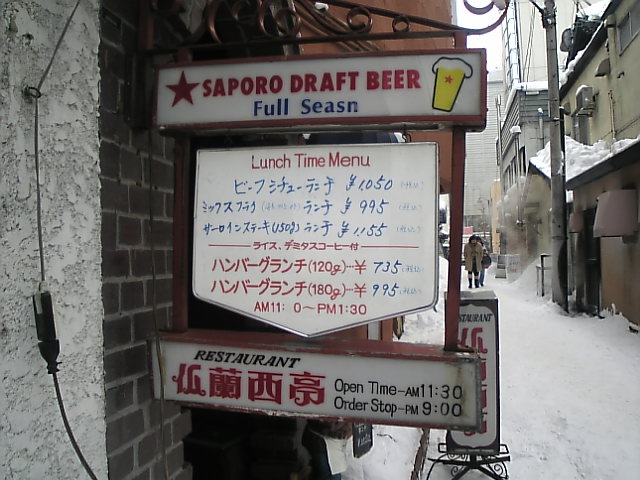 SAPORO DRAFT BEER
Full Seasn
Lunch Time Menu
ビーフシチューランチ ¥1,050
ミックスフライ ランチ ¥995
サーロインステーキ(150g)ランチ ¥1,155
ライス、デミタスコーヒー付
ハンバーグランチ(120g)…¥735
ハンバーグランチ(180g)…¥995
AM11:0~PM1:30
RESTAURANT
仏蘭西亭
Open Time-AM11:30
Order Stop-PM9:00
RESTAURANT
仏蘭西亭